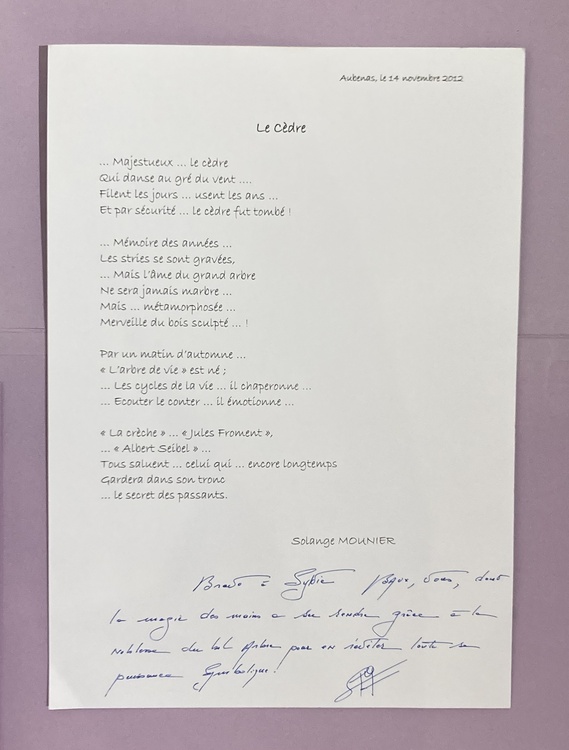 Aubenas, le 14 novembre 2012
Le Cèdre
... Majestueux ... le cèdre
Qui danse au gré du vent ....
Filent les jours ... usent les ans ...
Et par sécurité ... le cèdre fut tombé !
... Mémoire des années ...
Les stries se sont gravées,
... Mais l'âme du grand arbre
Ne sera jamais marbre ...
Mais ... métamorphosée ...
Merveille du bois sculpté ... !
Par un matin d'automne ...
« L'arbre de vie » est né ;
... Les cycles de la vie ... il chaperonne ...
... Ecouter le conter ... il émotionne ...
« La crèche » ... « Jules Froment »,
... « Albert Seibel » ...
Tous saluent ... celui qui ... encore longtemps
Gardera dans son tronc
... le secret des passants.
Solange MOUNIER
Bravo à vous, dont
la magie des mains a su rendre grâce à la
noblesse du bel Arbre pour en révéler toute sa
puissance Symbolique !